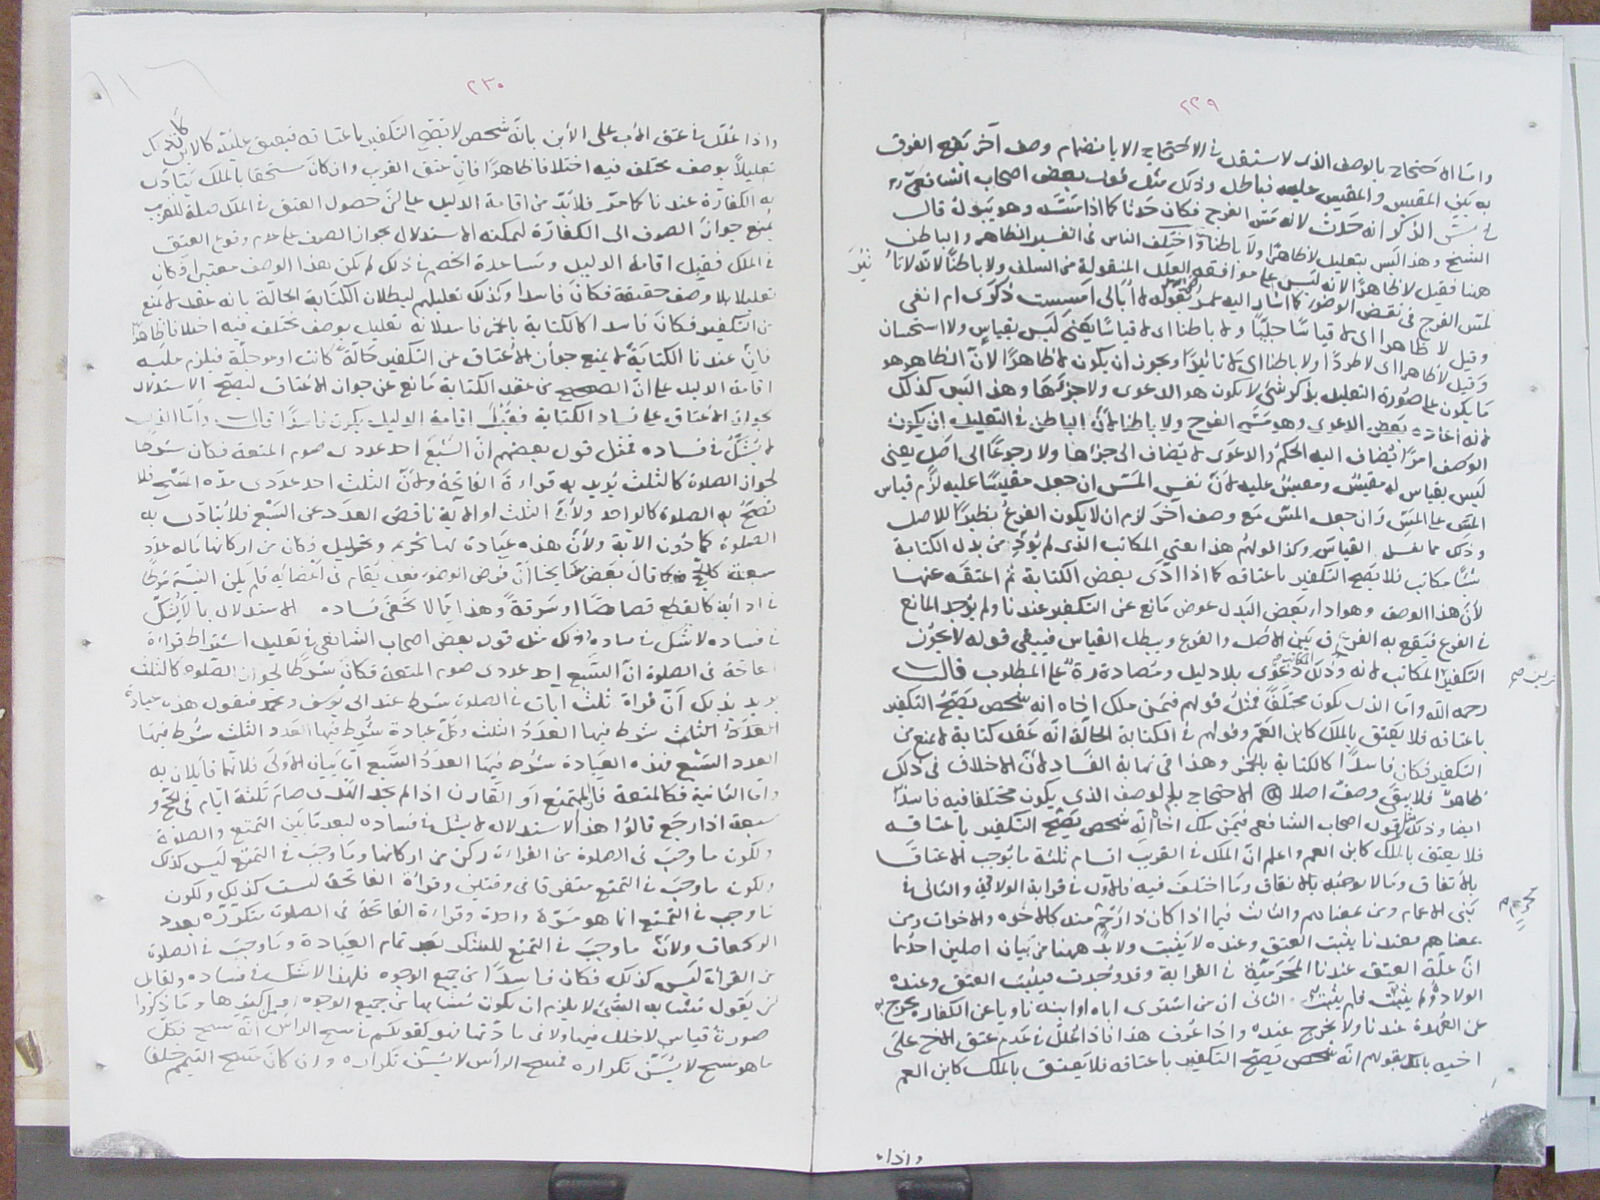 ٢٢٩
واما الاحتجاج بالوصف الذى لا يستقل فى الاحتجاج الا بانضمام وصف آخر تقع الفرق
به بين المقيس والمقيس عليه فباطل وذلك مثل قول بعض اصحاب الشافعى
فى مس الذكر انه حدث لانه مس الفرج فكان حدثا كما اذا مسه وهو يبول قال
الشيخ وهذا ليس بتعليل لا ظاهرا ولا باطنا اختلف الناس فى تفسير الظاهر والباطن
ههنا فقيل لا ظاهرا لانه ليس على موافقة العلل المنقولة من السلف ولا باطنا لانه لا
لمس الفرج فى نقض الوضوء كما اشار اليه عمر بقوله لا ابالى امسست ذكرى ام انفى
وقيل لا ظاهرا اى لا قياسا جليا ولا باطنا اى لا قياسا يعنى ليس بقياس ولا استحسان
وقيل لا ظاهرا اى لا طردا ولا باطنا اى لا تاثيرا ويجوز ان يكون لا ظاهرا لان الظاهر هو
ما يكون على صورة التعليل بذكر شئ لا يكون هو الدعوى ولا جزءها وهذا ليس كذلك
لانه اعاده بعض الدعوى وهو مس الفرج ولا باطنا لان الباطن فى التعليل ان يكون
الوصف امرا يضاف اليه الحكم والدعوى لا يضاف الى جزءها ولا رجوعا الى اصل يعنى
ليس بقياس له مقيس ومقيس عليه لان نفس المس ان جعل مقيسا عليه لزم قياس
المس على المس وان جعل المس مع وصف اخر لزم ان لا يكون الفرع نظيرا للاصل
وذلك مما يبطل القياس وكذا قولهم هذا يعنى المكاتب الذى لم يؤد من بدل الكتابة
شيئا مكاتب فلا يصح التكفير باعتاقه كما اذا ادى بعض الكتابة ثم اعتقه عنها
لان هذا الوصف وهو اداء بعض البدل عوض مانع عن التكفير عندنا ولم يوجد المانع
فى الفرع فيقع به الفرق بين الاصل والفرع ويبطل القياس فيبقى قوله لا يجوز
التكفير بالمكاتب لانه مكاتب وذلك دعوى بلا دليل ومصادرة على المطلوب قال
رحمه الله واما الذى يكون مختلفا فمثل قولهم فيمن ملك اخاه انه شخص يصح التكفير
باعتاقه فلا يعتق بالملك كابن العم وقولهم فى الكتابة الحالة انه عقد كتابة لا يمنع من
التكفير فكان فاسدا كالكتابة بالخمر وهذا فى نهاية الفساد لان الاختلاف فى ذلك
ظاهر فلا يبقى وصف اصلا الاحتجاج بالوصف الذى يكون مختلفا فيه فاسد
ايضا وذلك مثل قول اصحاب الشافعى فيمن ملك اخاه انه شخص يصح التكفير باعتاقه
فلا يعتق بالملك كابن العم واعلم ان الملك فى القريب اقسام ثلثة ما يوجب الاعتاق
بالاتفاق وما لا يوجبه بالاتفاق وما اختلف فيه فالاول فى قرابة الولاد والثانى فى
بنى الاعمام ومن بمعناهم والثالث فيما اذا كان ذا رحم منه كالاخوة والاخوات ومن
بمعناهم فعندنا يثبت العتق وعنده لا يثبت ولابد ههنا من بيان اصلين احدهما
ان علة العتق عندنا المحرمية فى القرابة وقد وجدت فيثبت العتق وعنده
الولاد ولم يثبت فلم يثبت الثانى ان من اشترى اباه او ابنه ناويا عن الكفارة يخرج به
عن العهدة عندنا ولا يخرج عنده واذا عرف هذا فاذا علل فى عدم عتق الاخ على
اخيه بالملك بقولهم انه شخص يصح التكفير باعتاقه فلا يعتق بالملك كابن العم
واذا
٢٣٠
واذا علل فى عتق الاب على الابن بانه شخص لا يصح التكفير باعتاقه فيعتق عليه كالابن كان ذلك
تعليلا بوصف يختلف فيه اختلافا ظاهرا فان عتق القريب وان كان مستحقا بالملك يتادى
به الكفارة عندنا كما مر فلابد من اقامة الدليل على ان حصول العتق فى الملك صلة للقريب
يمنع جواز الصرف الى الكفارة ليمكنه الاستدلال بجواز الصرف على عدم وقوع العتق
فى الملك فقبل اقامة الدليل ومساعدة الخصم فى ذلك لم يكن هذا الوصف معتبرا فكان
تعليلا بلا وصف حقيقة فكان فاسدا وكذلك تعليلهم لبطلان الكتابة الحالة بانه عقد لا يمنع
من التكفير فكان فاسدا كالكتابة بالخمر فاسد لانه تعليل بوصف يختلف فيه اختلافا ظاهرا
فان عندنا الكتابة لا يمنع جواز الاعتاق عن التكفير حالة كانت او مؤجلة فيلزم عليه
اقامة الدليل على ان الصحيح من عقد الكتابة مانع عن جواز الاعتاق ليصح الاستدلال
بجواز الاعتاق على فساد الكتابة فقبل اقامة الدليل يكون فاسدا قال واما الذى
لا يشك فى فساده فمثل قول بعضهم ان السبع احد عددى صوم المتعة فكان شرطا
لجواز الصلوة كالثلث يريد به قراءة الفاتحة ولان الثلث احد عددى مدة المسح فلا
تصح به الصلوة كالواحد ولان الثلث او الآية ناقص العدد عن السبع فلا يتادى به
الصلوة كما دون الآية ولان هذه عبادة لها تحريم وتحليل فكان من اركانها ماله عدد
سبعة كالحج كما قال بعض مشايخنا ان فرض الوضوء فعل يقام فى اعضائه فلم يكن النية شرطا
فى ادائه كالقطع قصاصا او سرقة وهذا مما لا يخفى فساده الاستدلال بما لا يشك
فى فساده لا شك فى فساده وذلك مثل قول بعض اصحاب الشافعى فى تعليل اشتراط قراءة
الفاتحة فى الصلوة ان السبع احد عددى صوم المتعة فكان شرطا لجواز الصلوة كالثلث
يريد بذلك ان قراءة ثلث ايات فى الصلوة شرط عند ابى يوسف ومحمد فنقول هذه عبادة
العدد الثالث شرط فيها العدد الثلث وكل عبادة شرط فيها العدد الثلث شرط فيها
العدد السبع فهذه العبادة شرط فيها العدد السبع اما بيان الاولى فلانهما قائلان به
واما الثانية فكالمتعة فان المتمتع او القارن اذا لم يجد الهدى صام ثلثة ايام فى الحج و
سبعة اذا رجع قالوا هذا الاستدلال لا يشك فى فساده لبعد ما بين التمتع والصلوة
ولكون ما وجب فى الصلوة من القراءة ركن من اركانها وما وجب فى التمتع ليس كذلك
ولكون ما وجب فى التمتع متفرقا فى وقتين وقراءة الفاتحة ليست كذلك ولكون
ما وجب فى التمتع انما هو مرة واحدة وقراءة الفاتحة فى الصلوة متكررة بعدد
الركعات ولان ما وجب فى التمتع للشكر بعد تمام العبادة وما وجب فى الصلوة
من القراءة ليس كذلك فكان فاسدا من جميع الوجوه فلهذا لا شك فى فساده ولقائل
ان يقول مشابه الشئ لا يلزم ان يكون مشابها من جميع الوجوه او اكثرها وما ذكروا
صورة قياس لا خلل فيها ولا فى مادتها فهو كقولكم فى مسح الراس انه مسح فكل
ما هو مسح لا يسن تكراره فمسح الرأس لا يسن تكراره وان كان مسح التيمم خلفا